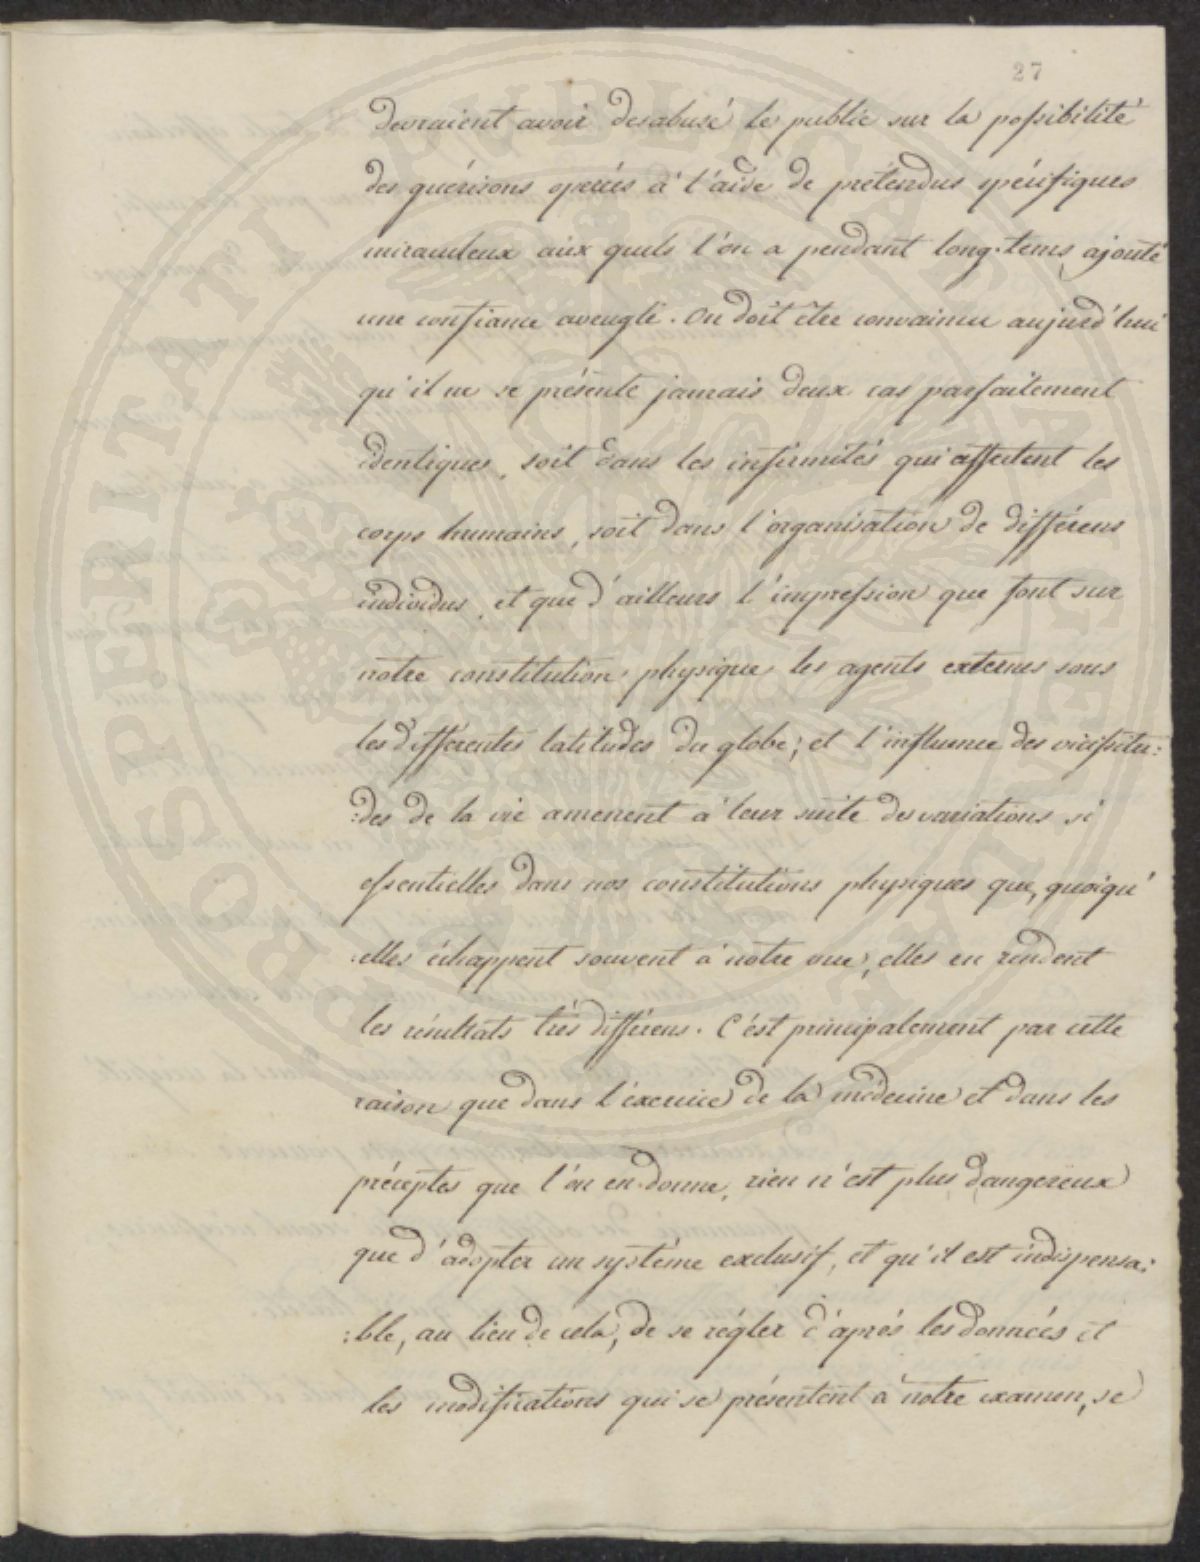 27
devraient avoir desabusé le public sur la possibilité
des guérisons operées à l'aide de prétendus spécifiques
miraculeux aux quels l'on a pendant long-tems ajouté
une confiance aveugle. On doit être convaincu aujourd'hui
qu'il ne se présente jamais deux cas parfaitement
identiques, soit dans les infirmités qui affectent les
corps humains, soit dans l'organisation de différens
individus, et que d'ailleurs l'impression que font sur
notre constitution physique les agents externes sous
les différentes latitudes du globe; et l'influence des vicissitu:
:des de la vie amenent à leur suite des variations si
essentielles dans nos constitutions physiques que, quoiqu'
:elles échappent souvent à notre vue, elles en rendent
les résultats très différens. C'est principalement par cette
raison que dans l'éxercice de la médecine et dans les
préceptes que l'on en donne, rien n'est plus dangereux
que d'adopter un système exclusif, et qu'il est indispensa:
:ble, au lieu de cela, de se régler d'après les données et
les modifications qui se présentent à notre examen, se
PROSPERITATI PVBLICAE AVGENDAE